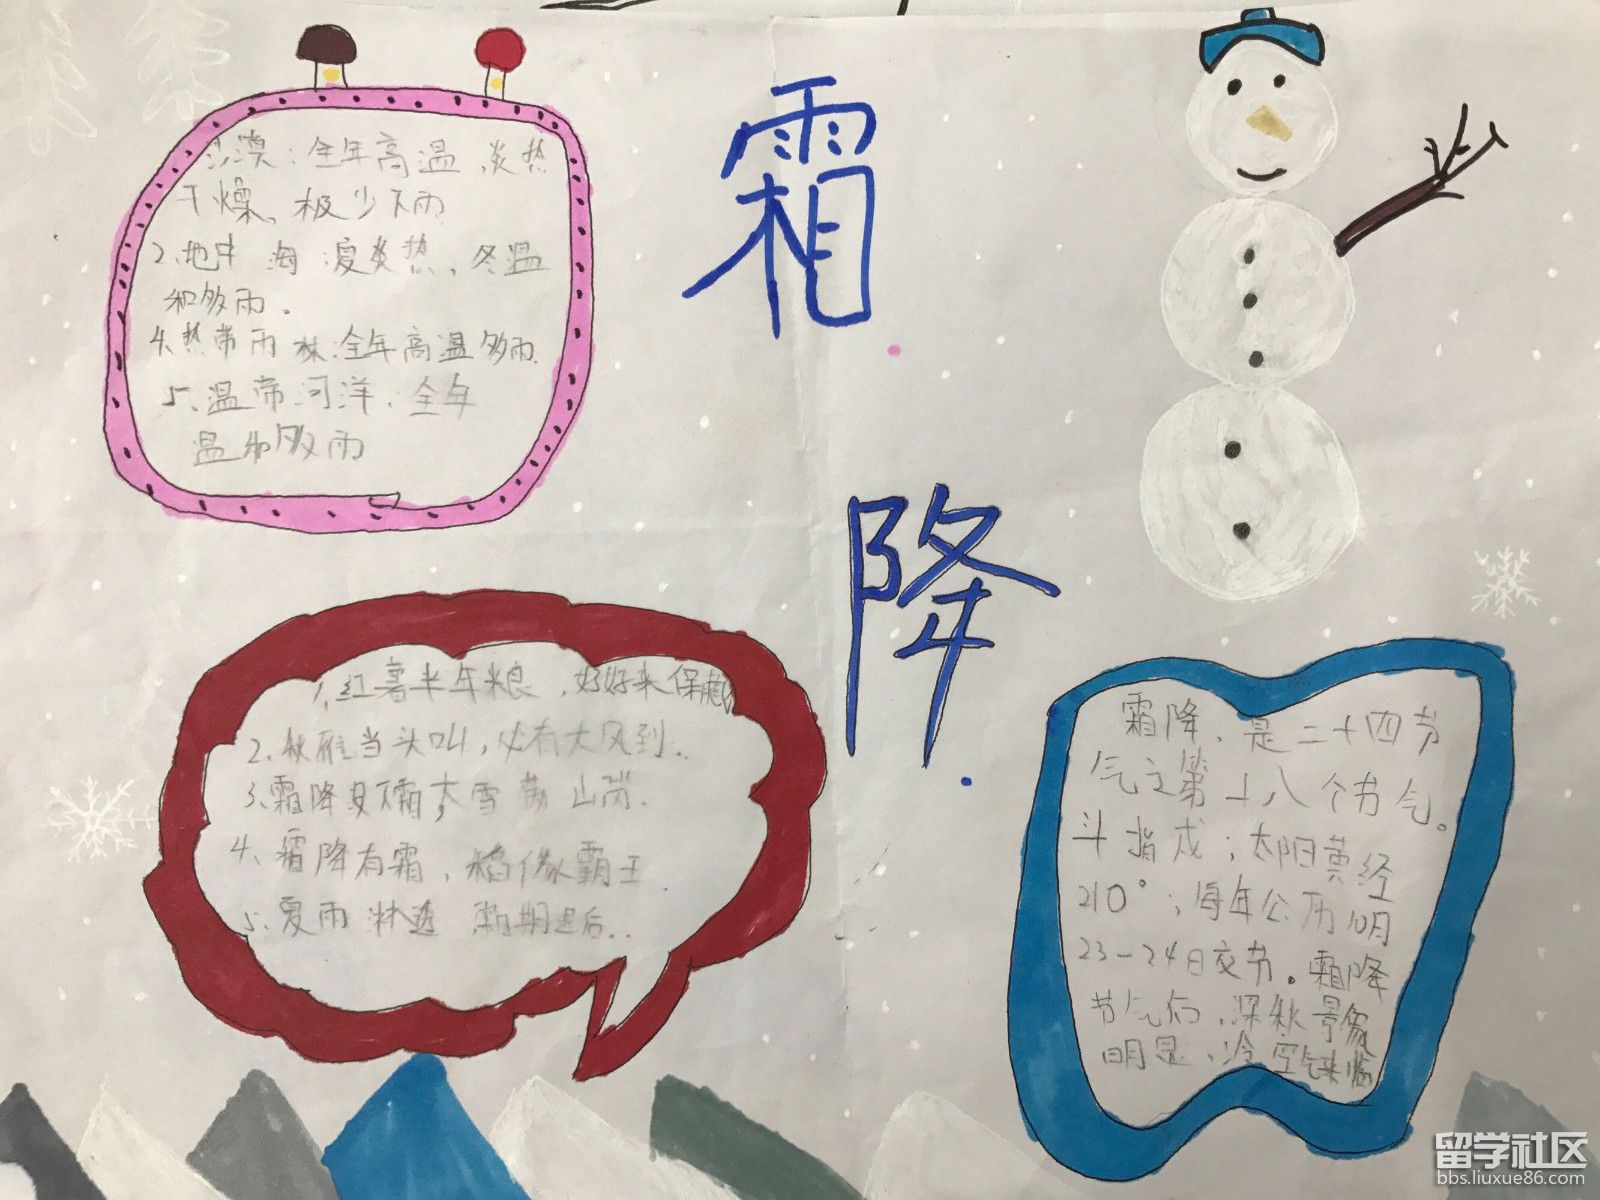 霜
降
沙漠：全年高温，炎热
干燥、极少下雨
2、地中海 夏炎热、冬温
和多雨。
4、热带雨林：全年高温多雨.
5、温带河洋：全年
温和多雨
1、红薯半年粮，好好来保藏
2、秋雁当头叫，必有大风到..
3、霜降见霜，大雪满山岗.
4、霜降有霜，稻像霸王.
5、夏雨淋透 霜期退后..
霜降，是二十四节
气之第十八个节气。
斗指戌；太阳黄经
210°；每年公历10月
23-24日交节。霜降
节气后，深秋景象
明显，冷空气来临
留学社区
bbs.liuxue86.com